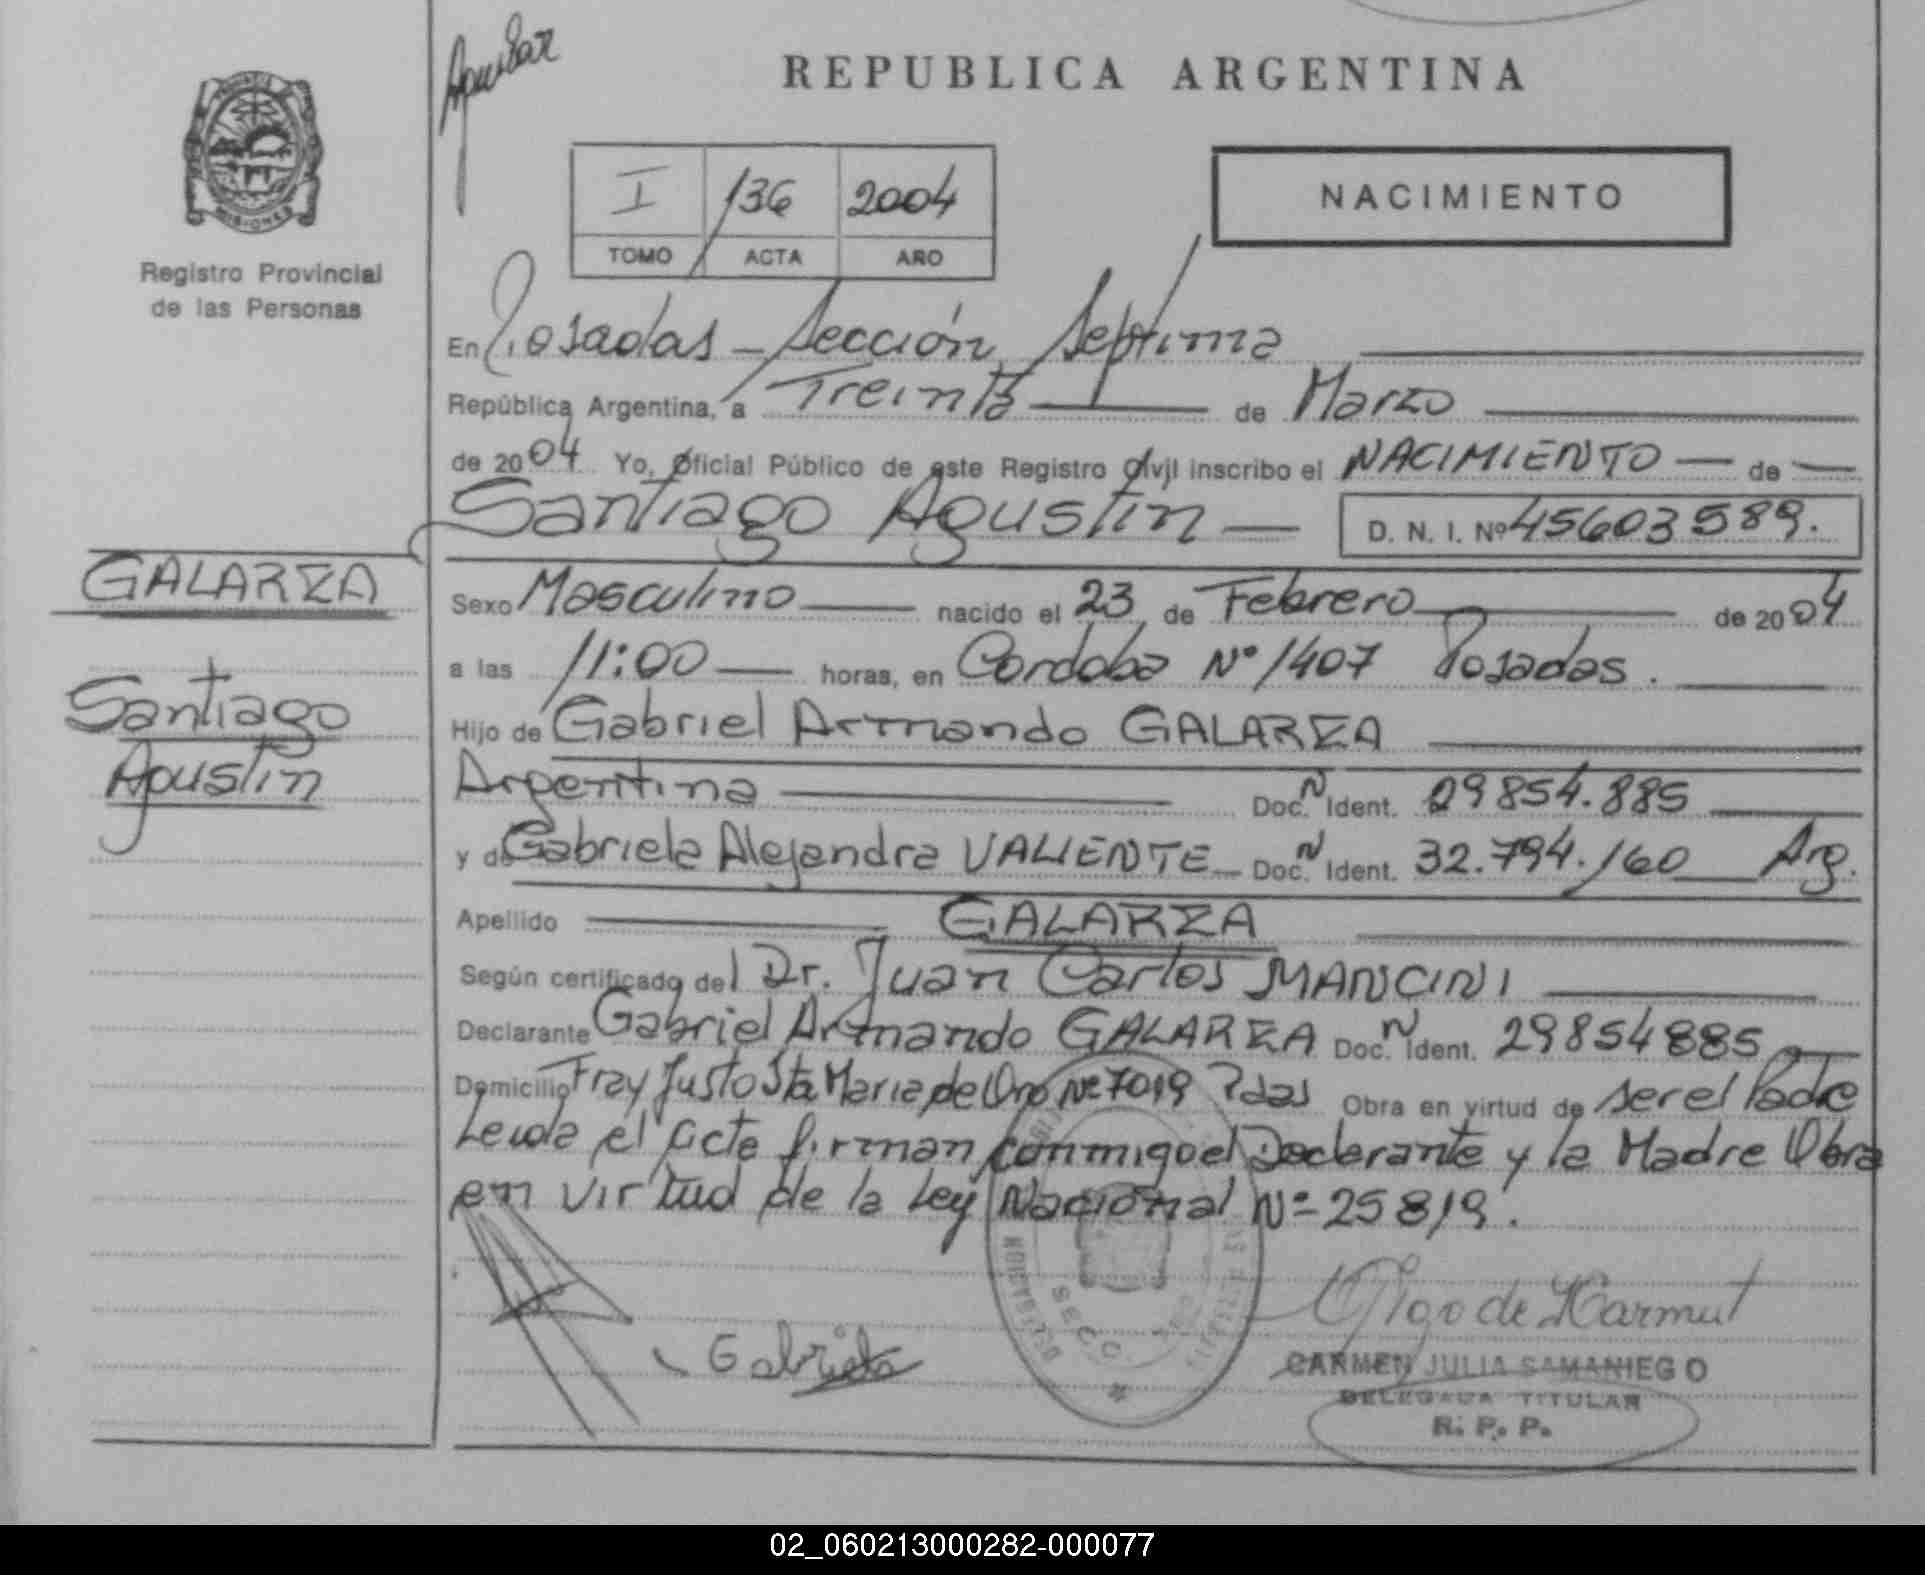 Aguilar
REPUBLICA ARGENTINA
MISIONES
Registro Provincial
de las Personas
I 136 2004
TOMO ACTA AÑO
NACIMIENTO
En Posadas - Sección Septima
República Argentina, a Treinta de Marzo
de 2004 Yo, Oficial Público de este Registro Civil inscribo el NACIMIENTO de
Santiago Agustin D. N. I. Nº 45603589.
GALARZA
Santiago
Agustin
Sexo Masculino nacido el 23 de Febrero de 2004
a las 11:00 horas, en Cordoba Nº 1407 Posadas.
Hijo de Gabriel Armando GALARZA
Argentina Doc. N Ident. 29854.885
y de Gabriela Alejandra VALIENTE Doc. N Ident. 32.794.160 Arg.
Apellido GALARZA
Según certificado del Dr. Juan Carlos MANCINI
Declarante Gabriel Armando GALARZA Doc. N Ident. 29854885
Domicilio Fray Justo Sta Maria de Oro Nº 7019 Pdas Obra en virtud de ser el Padre
Leida el Acta firman conmigo el Declarante y la Madre Obra
en virtud de la Ley Nacional Nº 25819.
Gabriela
SECC.
CARMEN JULIA SAMANIEGO
DELEGADA TITULAR
R. P. P.
02_060213000282-000077